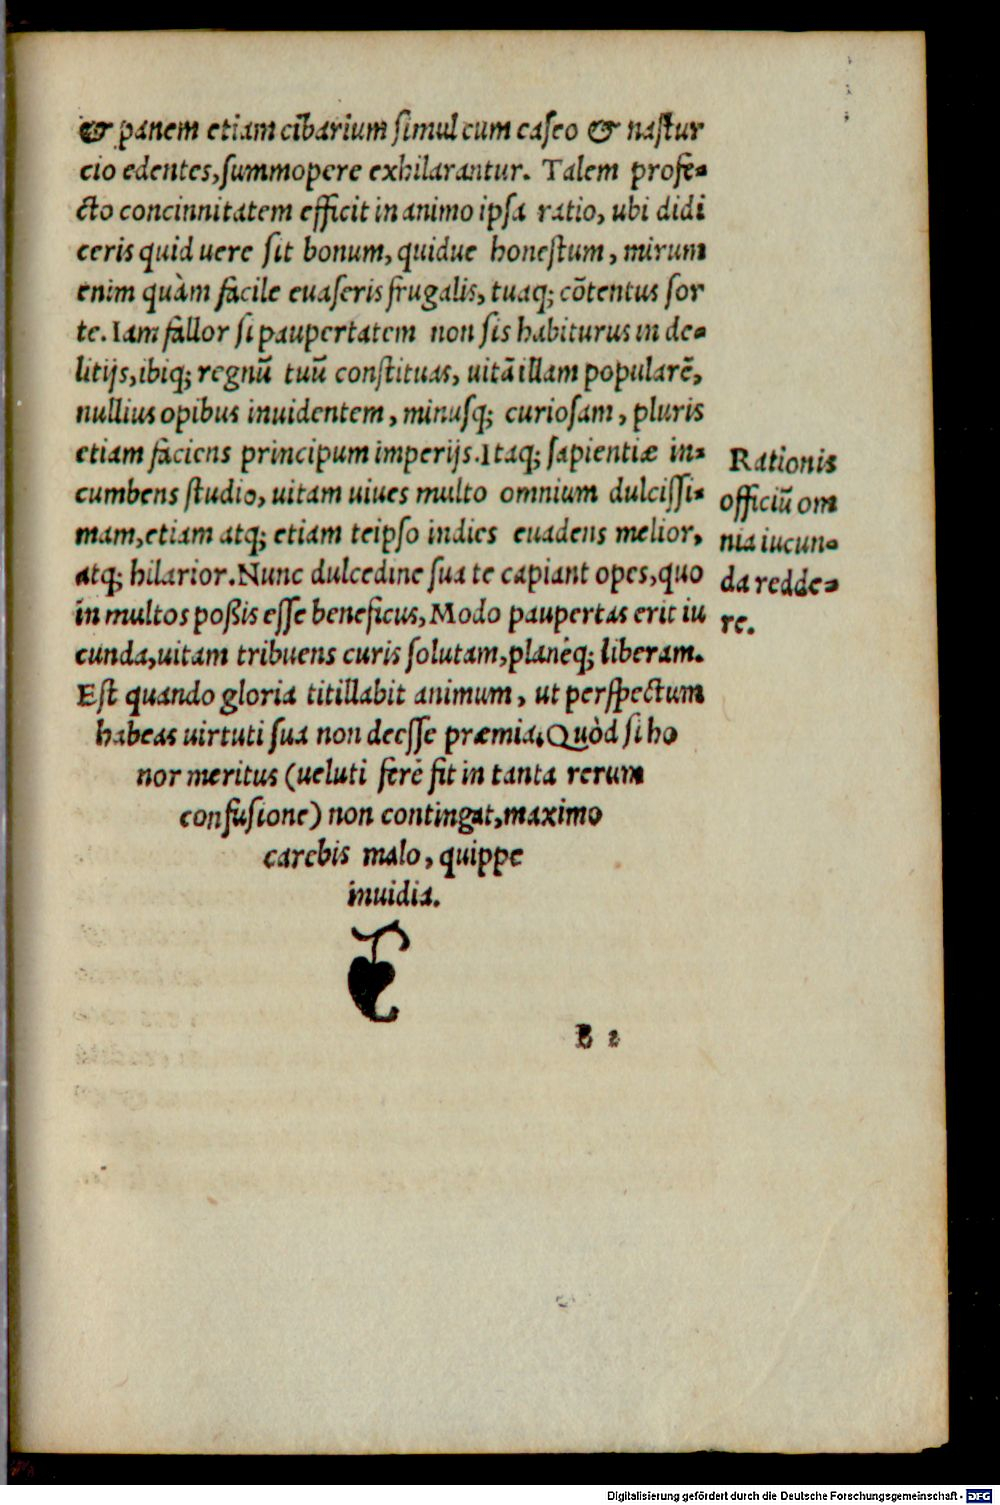 & panem etiam cibarium simul cum caseo & nastur
cio edentes, summopere exhilarantur. Talem profe-
cto concinnitatem efficit in animo ipsa ratio, ubi didi
ceris quid uere sit bonum, quidue honestum, mirum
enim quàm facile euaseris frugalis, tuaq; cõtentus sor
te. Iam fallor si paupertatem non sis habiturus in de-
litijs, ibiq; regnũ tuũ constituas, uitã illam popularẽ,
nullius opibus inuidentem, minusq; curiosam, pluris
etiam faciens principum imperijs. Itaq; sapientiæ in-
cumbens studio, uitam uiues multo omnium dulcissi-
mam, etiam atq; etiam teipso indies euadens melior,
atq; hilarior. Nunc dulcedine sua te capiant opes, quo
in multos poßis esse beneficus, Modo paupertas erit iu
cunda, uitam tribuens curis solutam, planéq; liberam.
Est quando gloria titillabit animum, ut perspectum
habeas uirtuti sua non deesse præmia. Quòd si ho
nor meritus (ueluti ferè fit in tanta rerum
confusione) non contingat, maximo
carebis malo, quippe
inuidia.
Rationis
officiũ om
nia iucun-
da redde-
re.
B 2
Digitalisierung gefördert durch die Deutsche Forschungsgemeinschaft - DFG